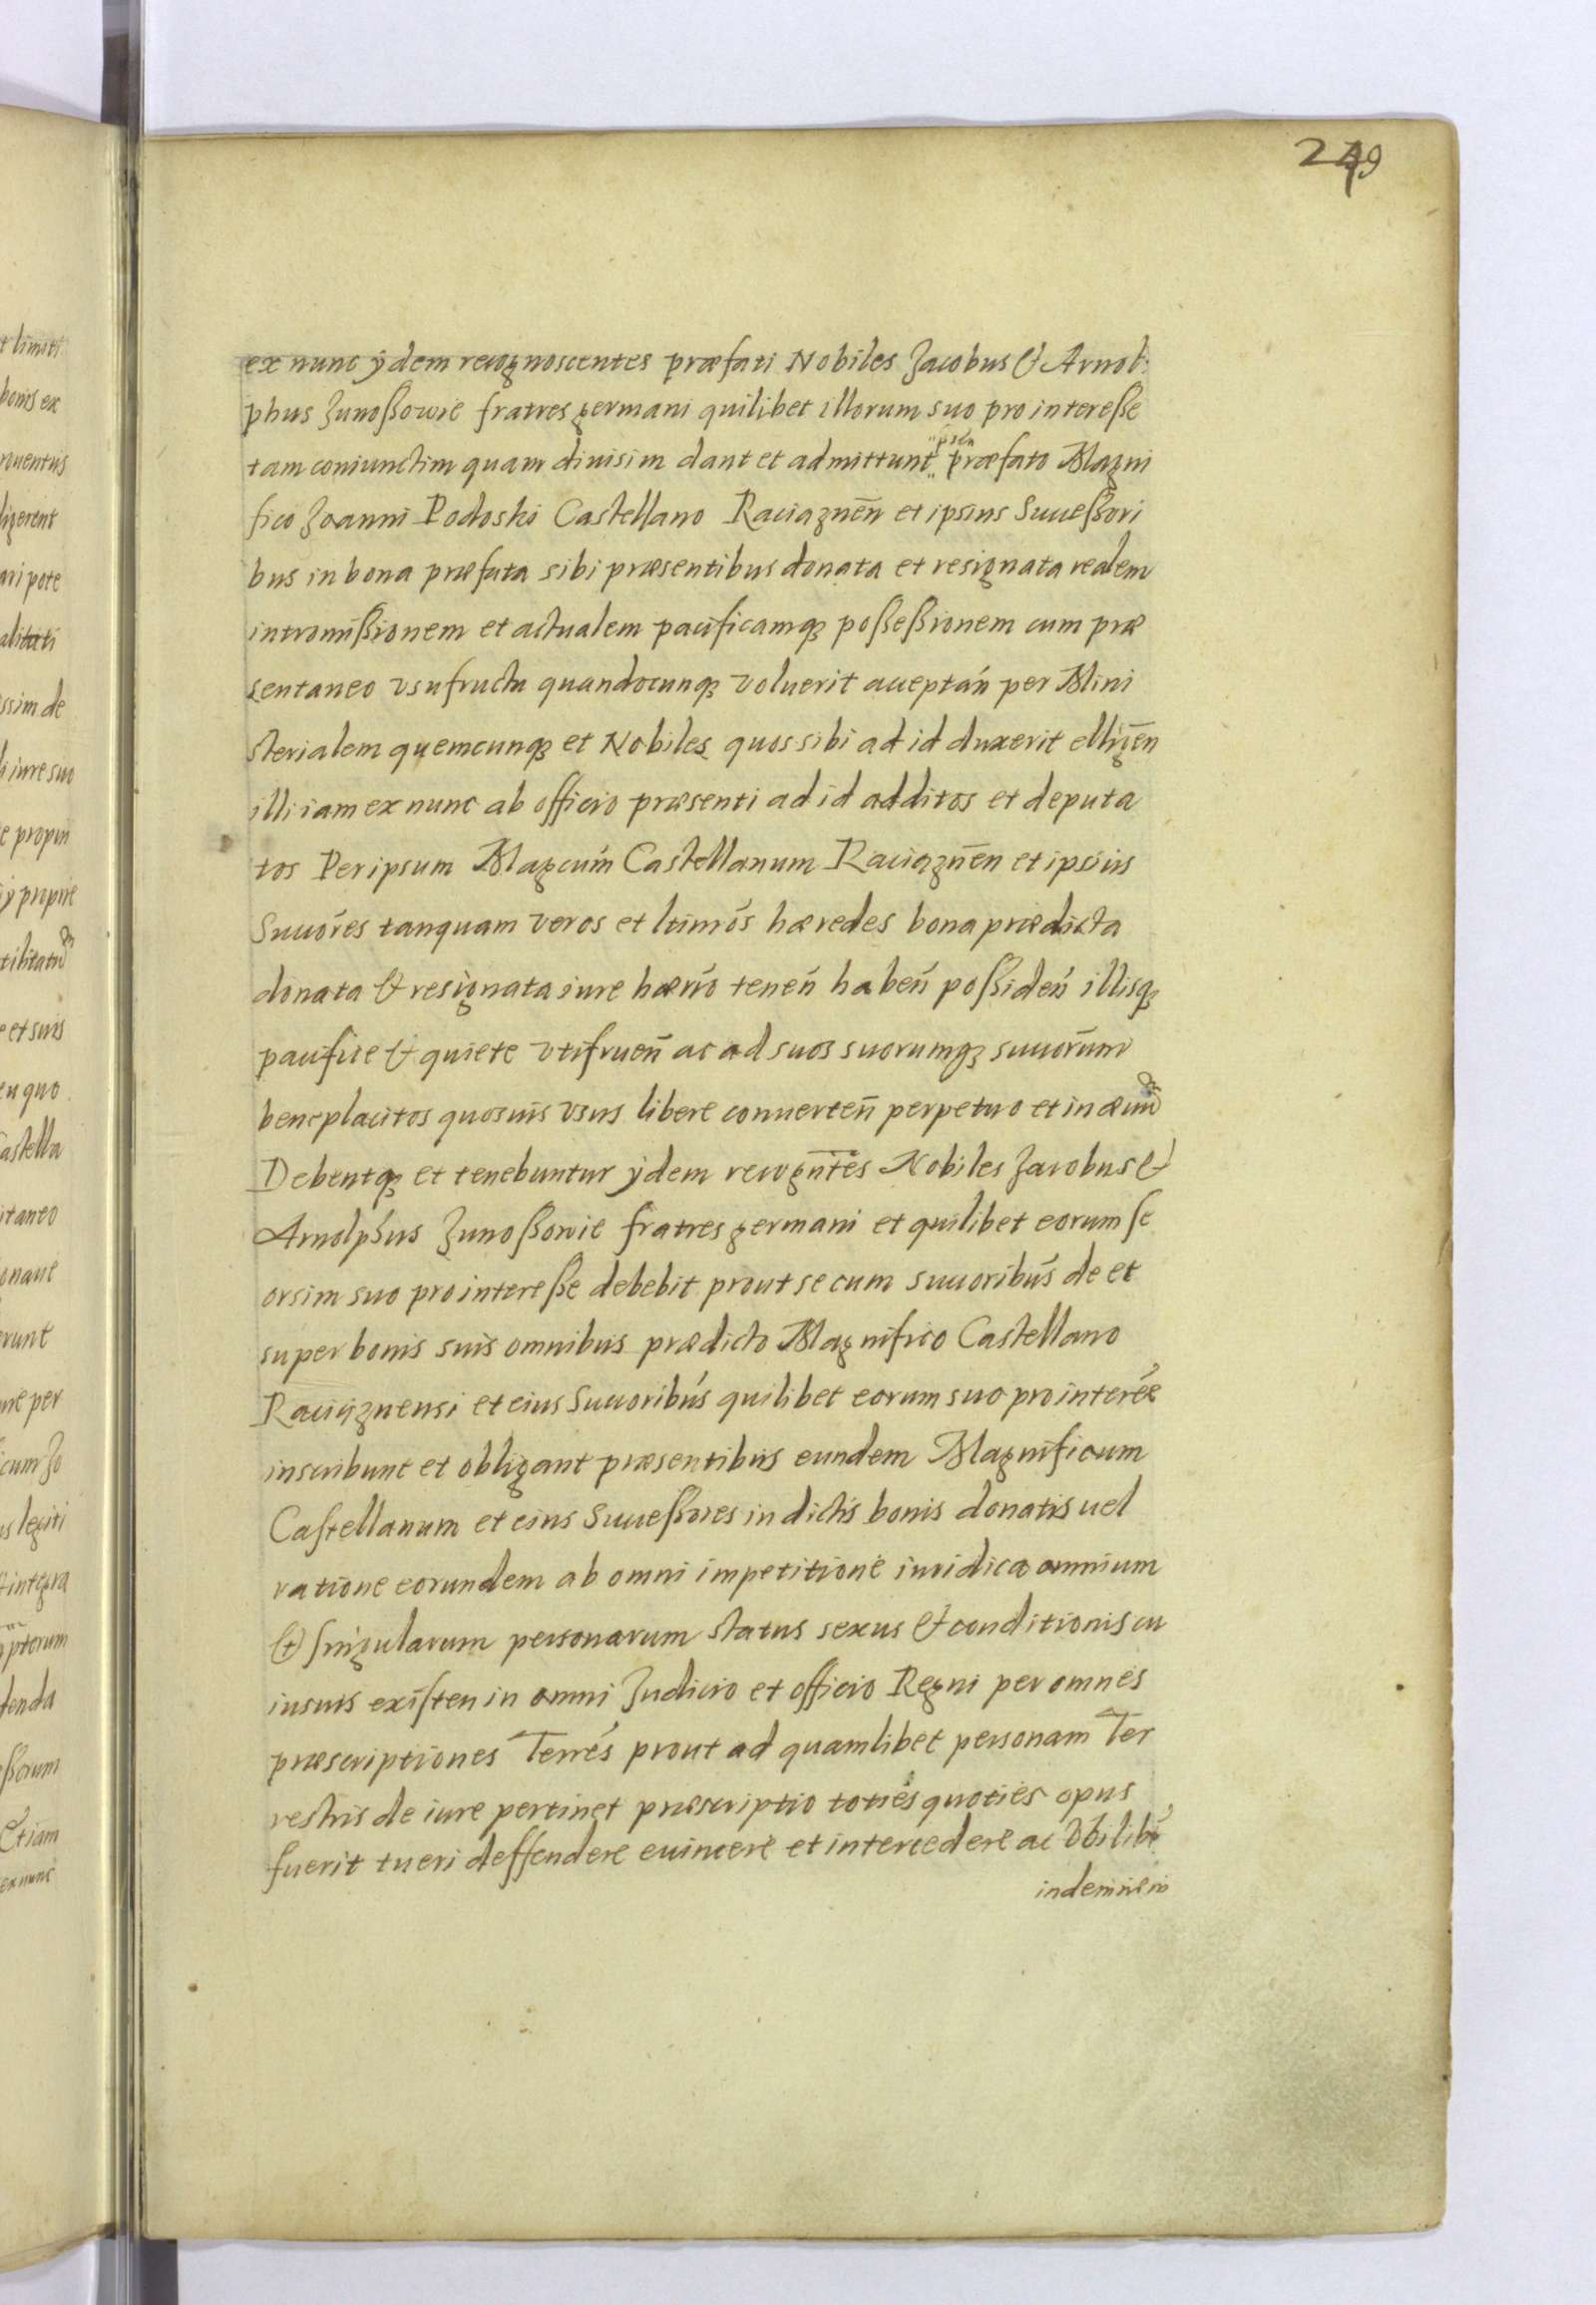 249
ex nunc ÿdem recognoscentes præfati Nobiles Jacobus & Arnol:
phus Junoßowie fratres germani quilibet illorum suo pro intereße
tam coniunctim quam diuisim dant et admittunt præfato Magni
fico Joanni Podoski Castellano Raciaznēn et ipsius Succeßori
bus in bona præfata sibi præsentibus donata et resignata realem
intromißionem et actualem pacificamqȝ poßeßionem cum præ
sentaneo vsufructu quandocunqȝ voluerit acceptań per Mini
sterialem quemcunqȝ et Nobiles quos sibi ad id duxerit elligēn
illi iam ex nunc ab officio præsenti ad id additos et deputa
tos Per ipsum Magcum̄ Castellanum Raciaznēn et ipsius
Succōres tanquam veros et ltimōs hæredes bona prædicta
donata & resignata iure hærō tenen̄ haben̄ poßiden̄ illisqȝ
pacifice & quiete vtifruen̄ ac ad suos suorumqȝ succorūm
beneplacitos quosuis vsus libere conuerten̄ perpetuo et in æuu
Debentqȝ et tenebuntur ÿdem recogn̄tēs Nobiles Jacobus &
Arnolphus Junoßowie fratres germani et quilibet eorum se
orsim suo pro intereße debebit prout se cum succoribūs de et
super bonis suis omnibus prædicto Magnifico Castellano
Raciąznensi et eius Succoribūs quilibet eorum suo pro interēe
inscribunt et obligant præsentibus eundem Magnificum
Castellanum et eius Succeßores in dictis bonis donatis uel
ratione eorundem ab omni impetitione iuridica omnium
& singularum personarum status sexus & conditionis cu
iusuis existen in omni Judicio et officio Regni per omnes
præscriptiones Terrēs prout ad quamlibet personam Ter
restris de iure pertinet præscriptio toties quoties opus
fuerit tueri deffendere euincere et intercedere ac Vbilibȝ
indemnem